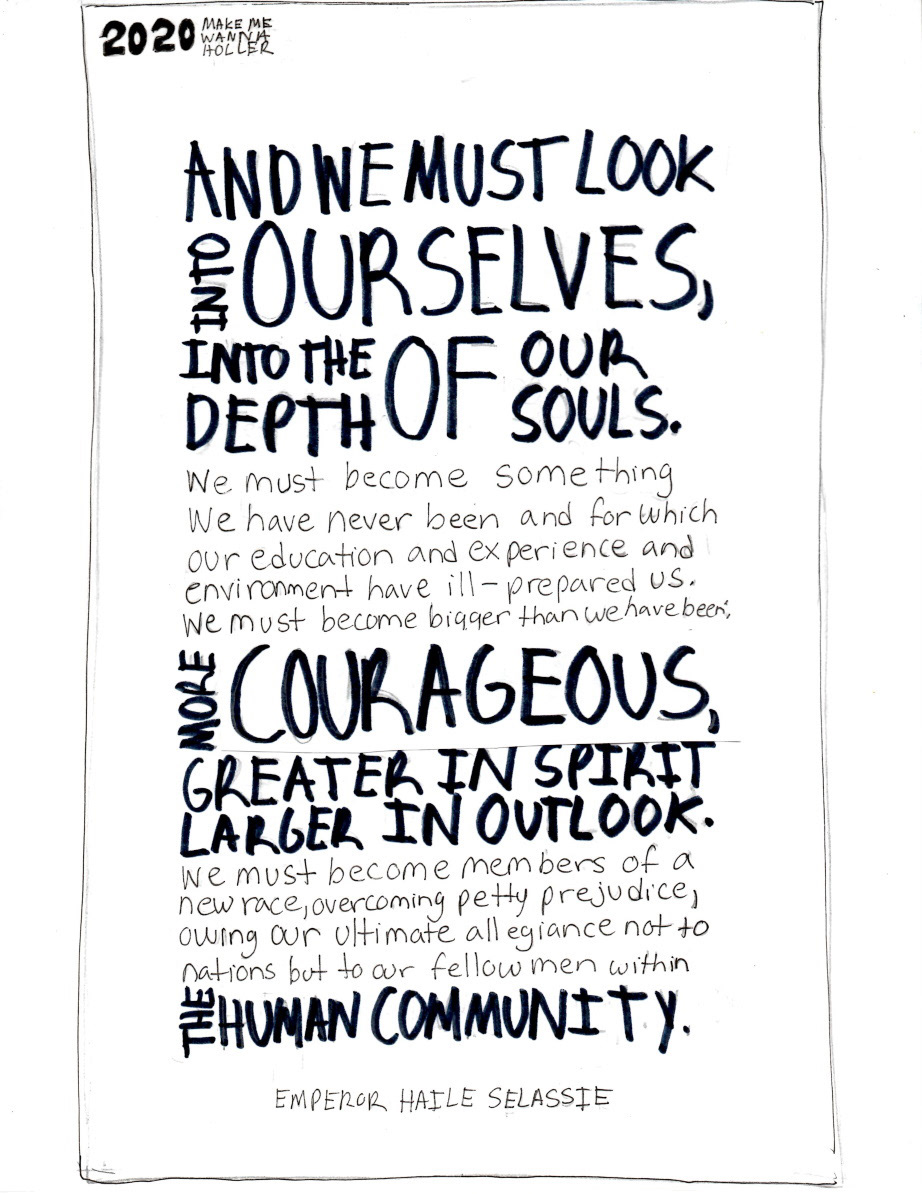 2020 MAKE ME
WANNA
HOLLER
AND WE MUST LOOK
INTO OURSELVES,
INTO THE
DEPTH OF OUR
SOULS.
We must become something
We have never been and for which
our education and experience and
environment have ill-prepared us.
We must become bigger than we have been;
MORE COURAGEOUS,
GREATER IN SPIRIT
LARGER IN OUTLOOK.
We must become members of a
new race, overcoming petty prejudice,
owing our ultimate allegiance not to
nations but to our fellow men within
THE HUMAN COMMUNITY.
EMPEROR HAILE SELASSIE